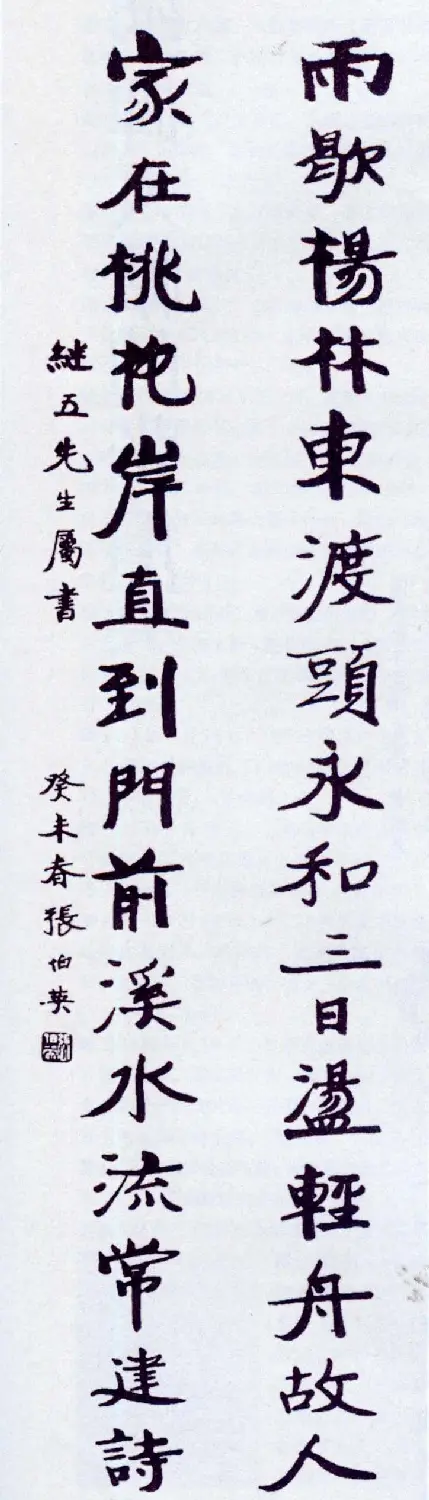 雨歇楊林東渡頭永和三日盪輕舟故人
家在桃花岸直到門前溪水流常建詩
継五先生屬書
癸未春張伯英